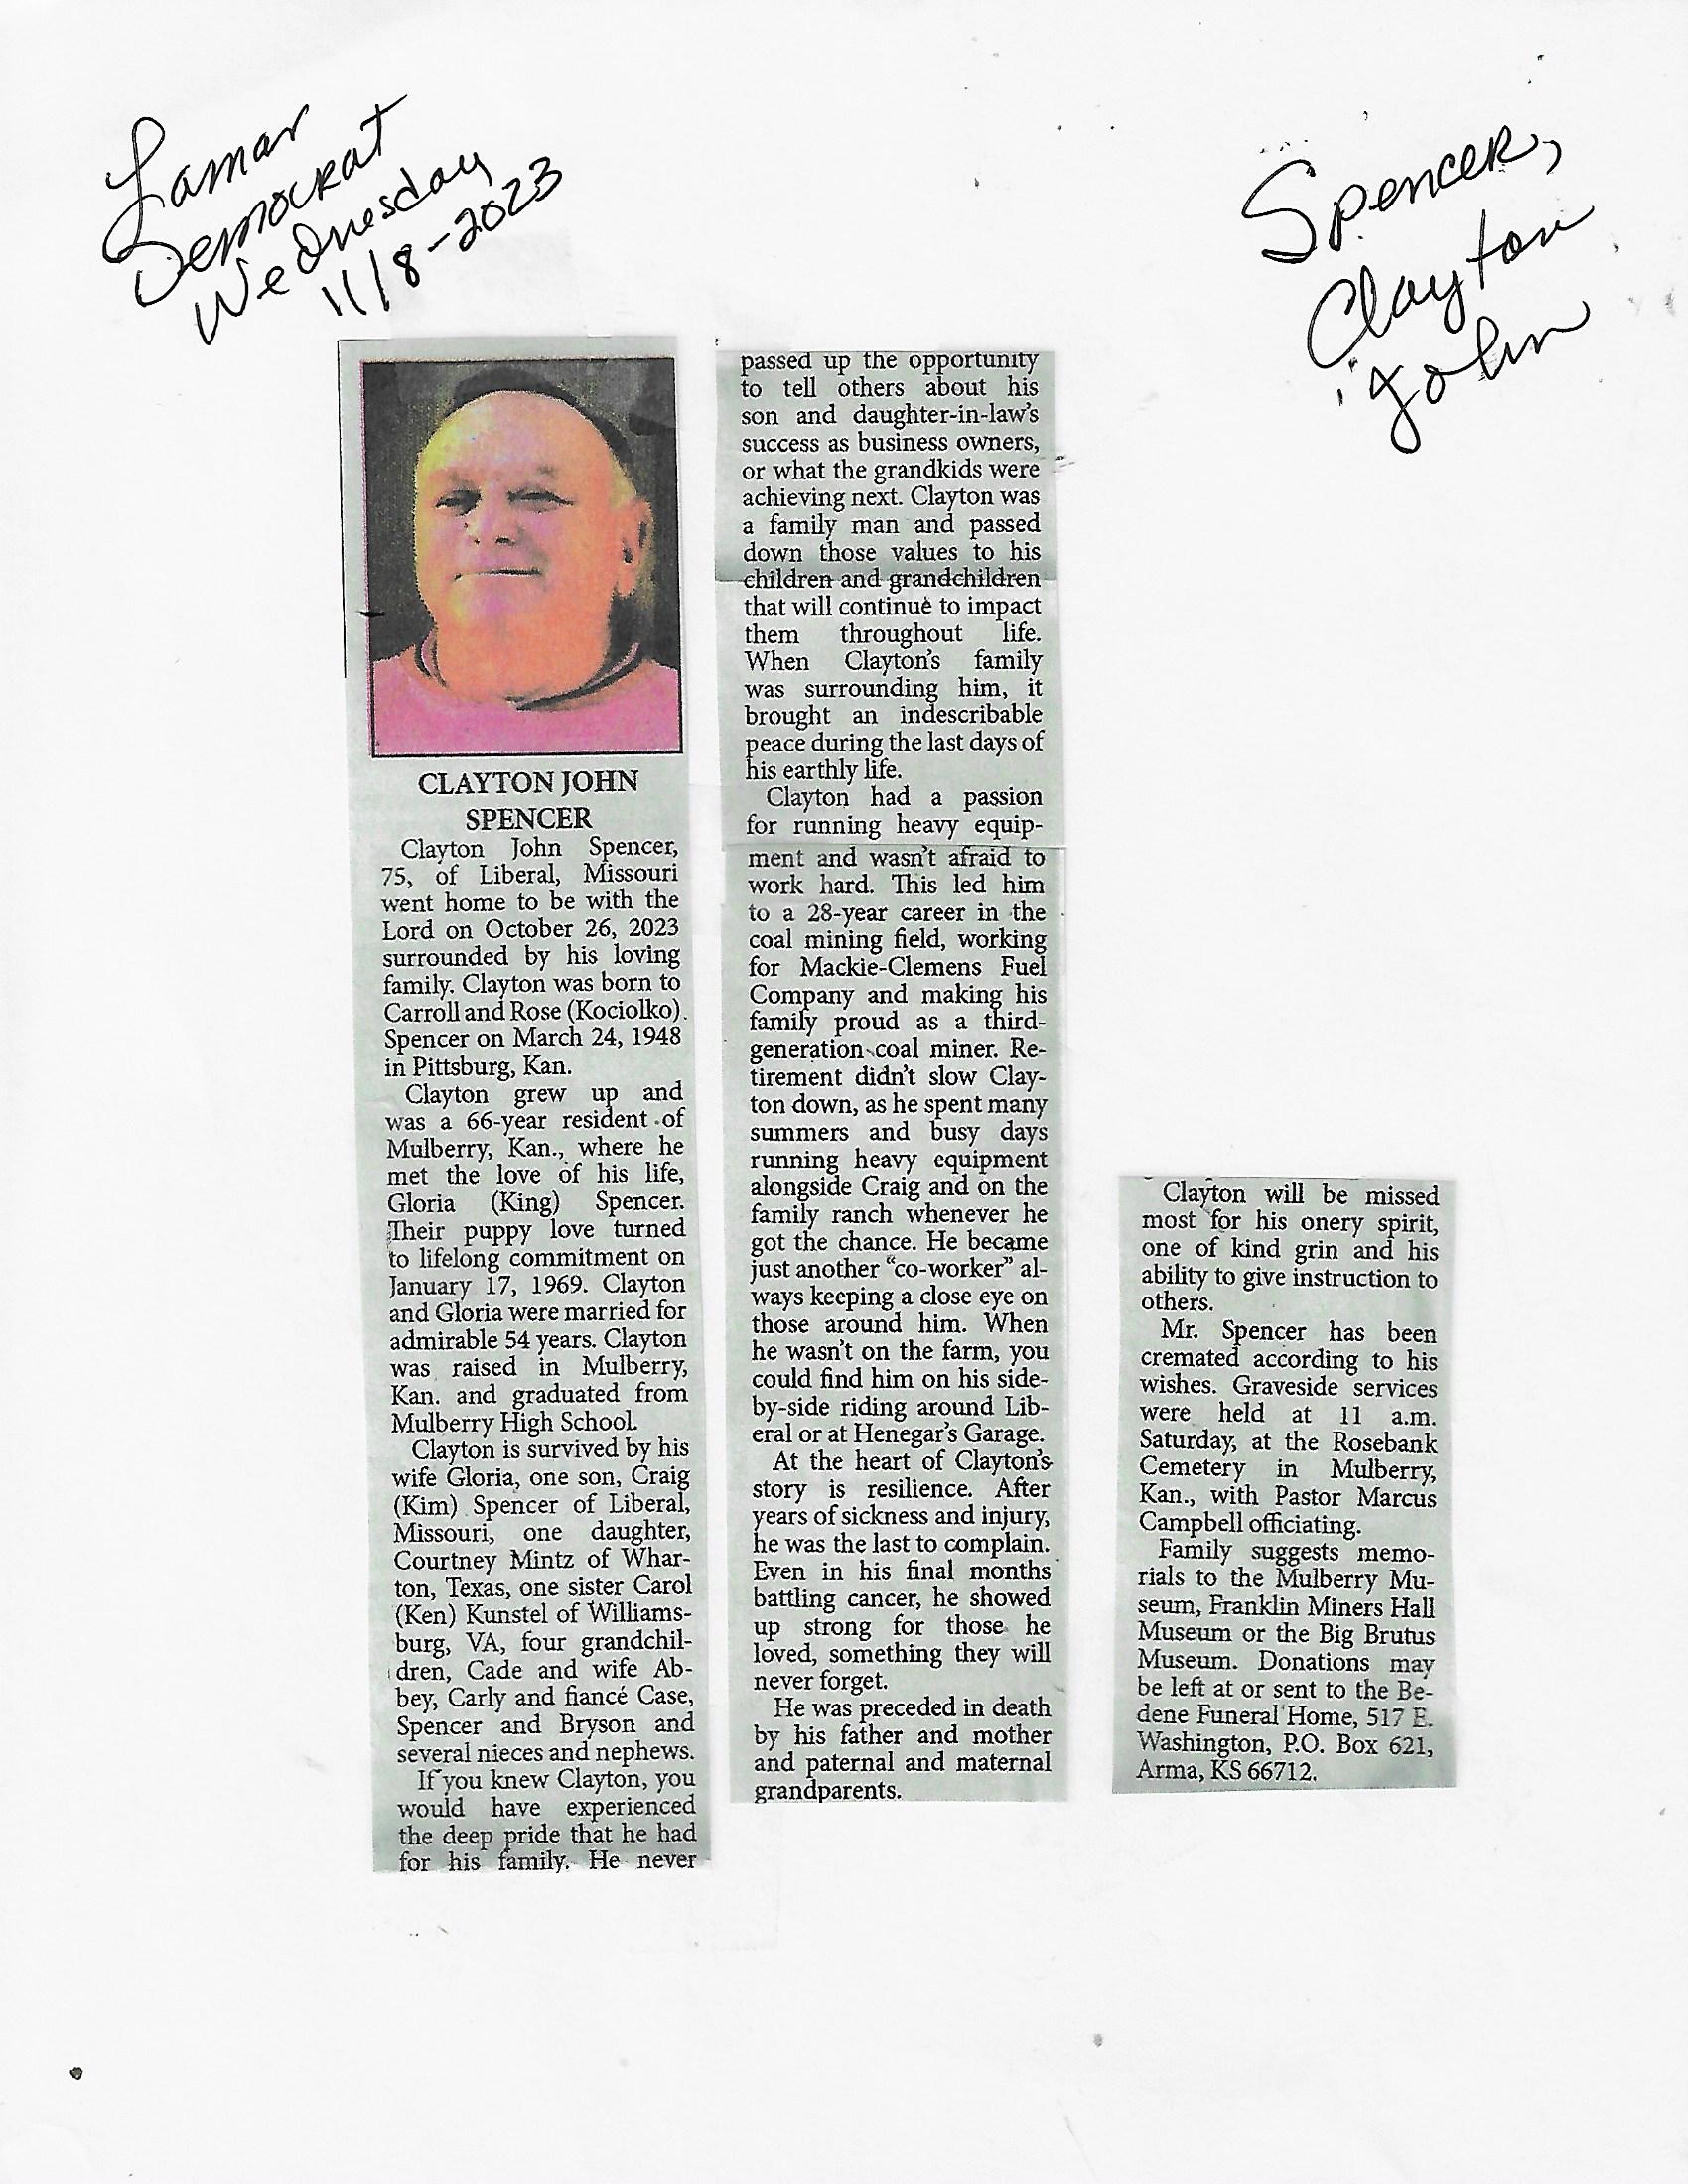 Lamar
Democrat
Wednesday
11/8-2023
Spencer,
Clayton
John
CLAYTON JOHN
SPENCER
Clayton John Spencer,
75, of Liberal, Missouri
went home to be with the
Lord on October 26, 2023
surrounded by his loving
family. Clayton was born to
Carroll and Rose (Kociolko)
Spencer on March 24, 1948
in Pittsburg, Kan.
Clayton grew up and
was a 66-year resident of
Mulberry, Kan., where he
met the love of his life,
Gloria (King) Spencer.
Their puppy love turned
to lifelong commitment on
January 17, 1969. Clayton
and Gloria were married for
admirable 54 years. Clayton
was raised in Mulberry,
Kan. and graduated from
Mulberry High School.
Clayton is survived by his
wife Gloria, one son, Craig
(Kim) Spencer of Liberal,
Missouri, one daughter,
Courtney Mintz of Whar-
ton, Texas, one sister Carol
(Ken) Kunstel of Williams-
burg, VA, four grandchil-
dren, Cade and wife Ab-
bey, Carly and fiancé Case,
Spencer and Bryson and
several nieces and nephews.
If you knew Clayton, you
would have experienced
the deep pride that he had
for his family. He never
passed up the opportunity
to tell others about his
son and daughter-in-law's
success as business owners,
or what the grandkids were
achieving next. Clayton was
a family man and passed
down those values to his
children and grandchildren
that will continue to impact
them throughout life.
When Clayton's family
was surrounding him, it
brought an indescribable
peace during the last days of
his earthly life.
Clayton had a passion
for running heavy equip-
ment and wasn't afraid to
work hard. This led him
to a 28-year career in the
coal mining field, working
for Mackie-Clemens Fuel
Company and making his
family proud as a third-
generation coal miner. Re-
tirement didn't slow Clay-
ton down, as he spent many
summers and busy days
running heavy equipment
alongside Craig and on the
family ranch whenever he
got the chance. He became
just another "co-worker" al-
ways keeping a close eye on
those around him. When
he wasn't on the farm, you
could find him on his side-
by-side riding around Lib-
eral or at Henegar's Garage.
At the heart of Clayton's
story is resilience. After
years of sickness and injury,
he was the last to complain.
Even in his final months
battling cancer, he showed
up strong for those he
loved, something they will
never forget.
He was preceded in death
by his father and mother
and paternal and maternal
grandparents.
Clayton will be missed
most for his onery spirit,
one of kind grin and his
ability to give instruction to
others.
Mr. Spencer has been
cremated according to his
wishes. Graveside services
were held at 11 a.m.
Saturday, at the Rosebank
Cemetery in Mulberry,
Kan., with Pastor Marcus
Campbell officiating.
Family suggests memo-
rials to the Mulberry Mu-
seum, Franklin Miners Hall
Museum or the Big Brutus
Museum. Donations may
be left at or sent to the Be-
dene Funeral Home, 517 E.
Washington, P.O. Box 621,
Arma, KS 66712.